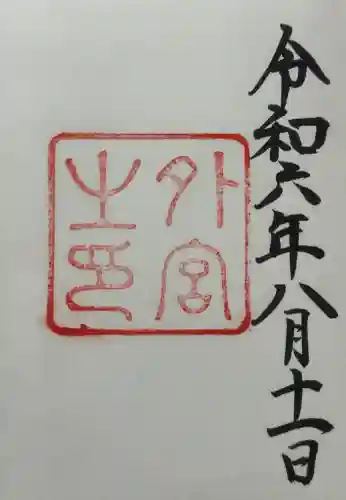 令和六年八月十一日
外宮
之印